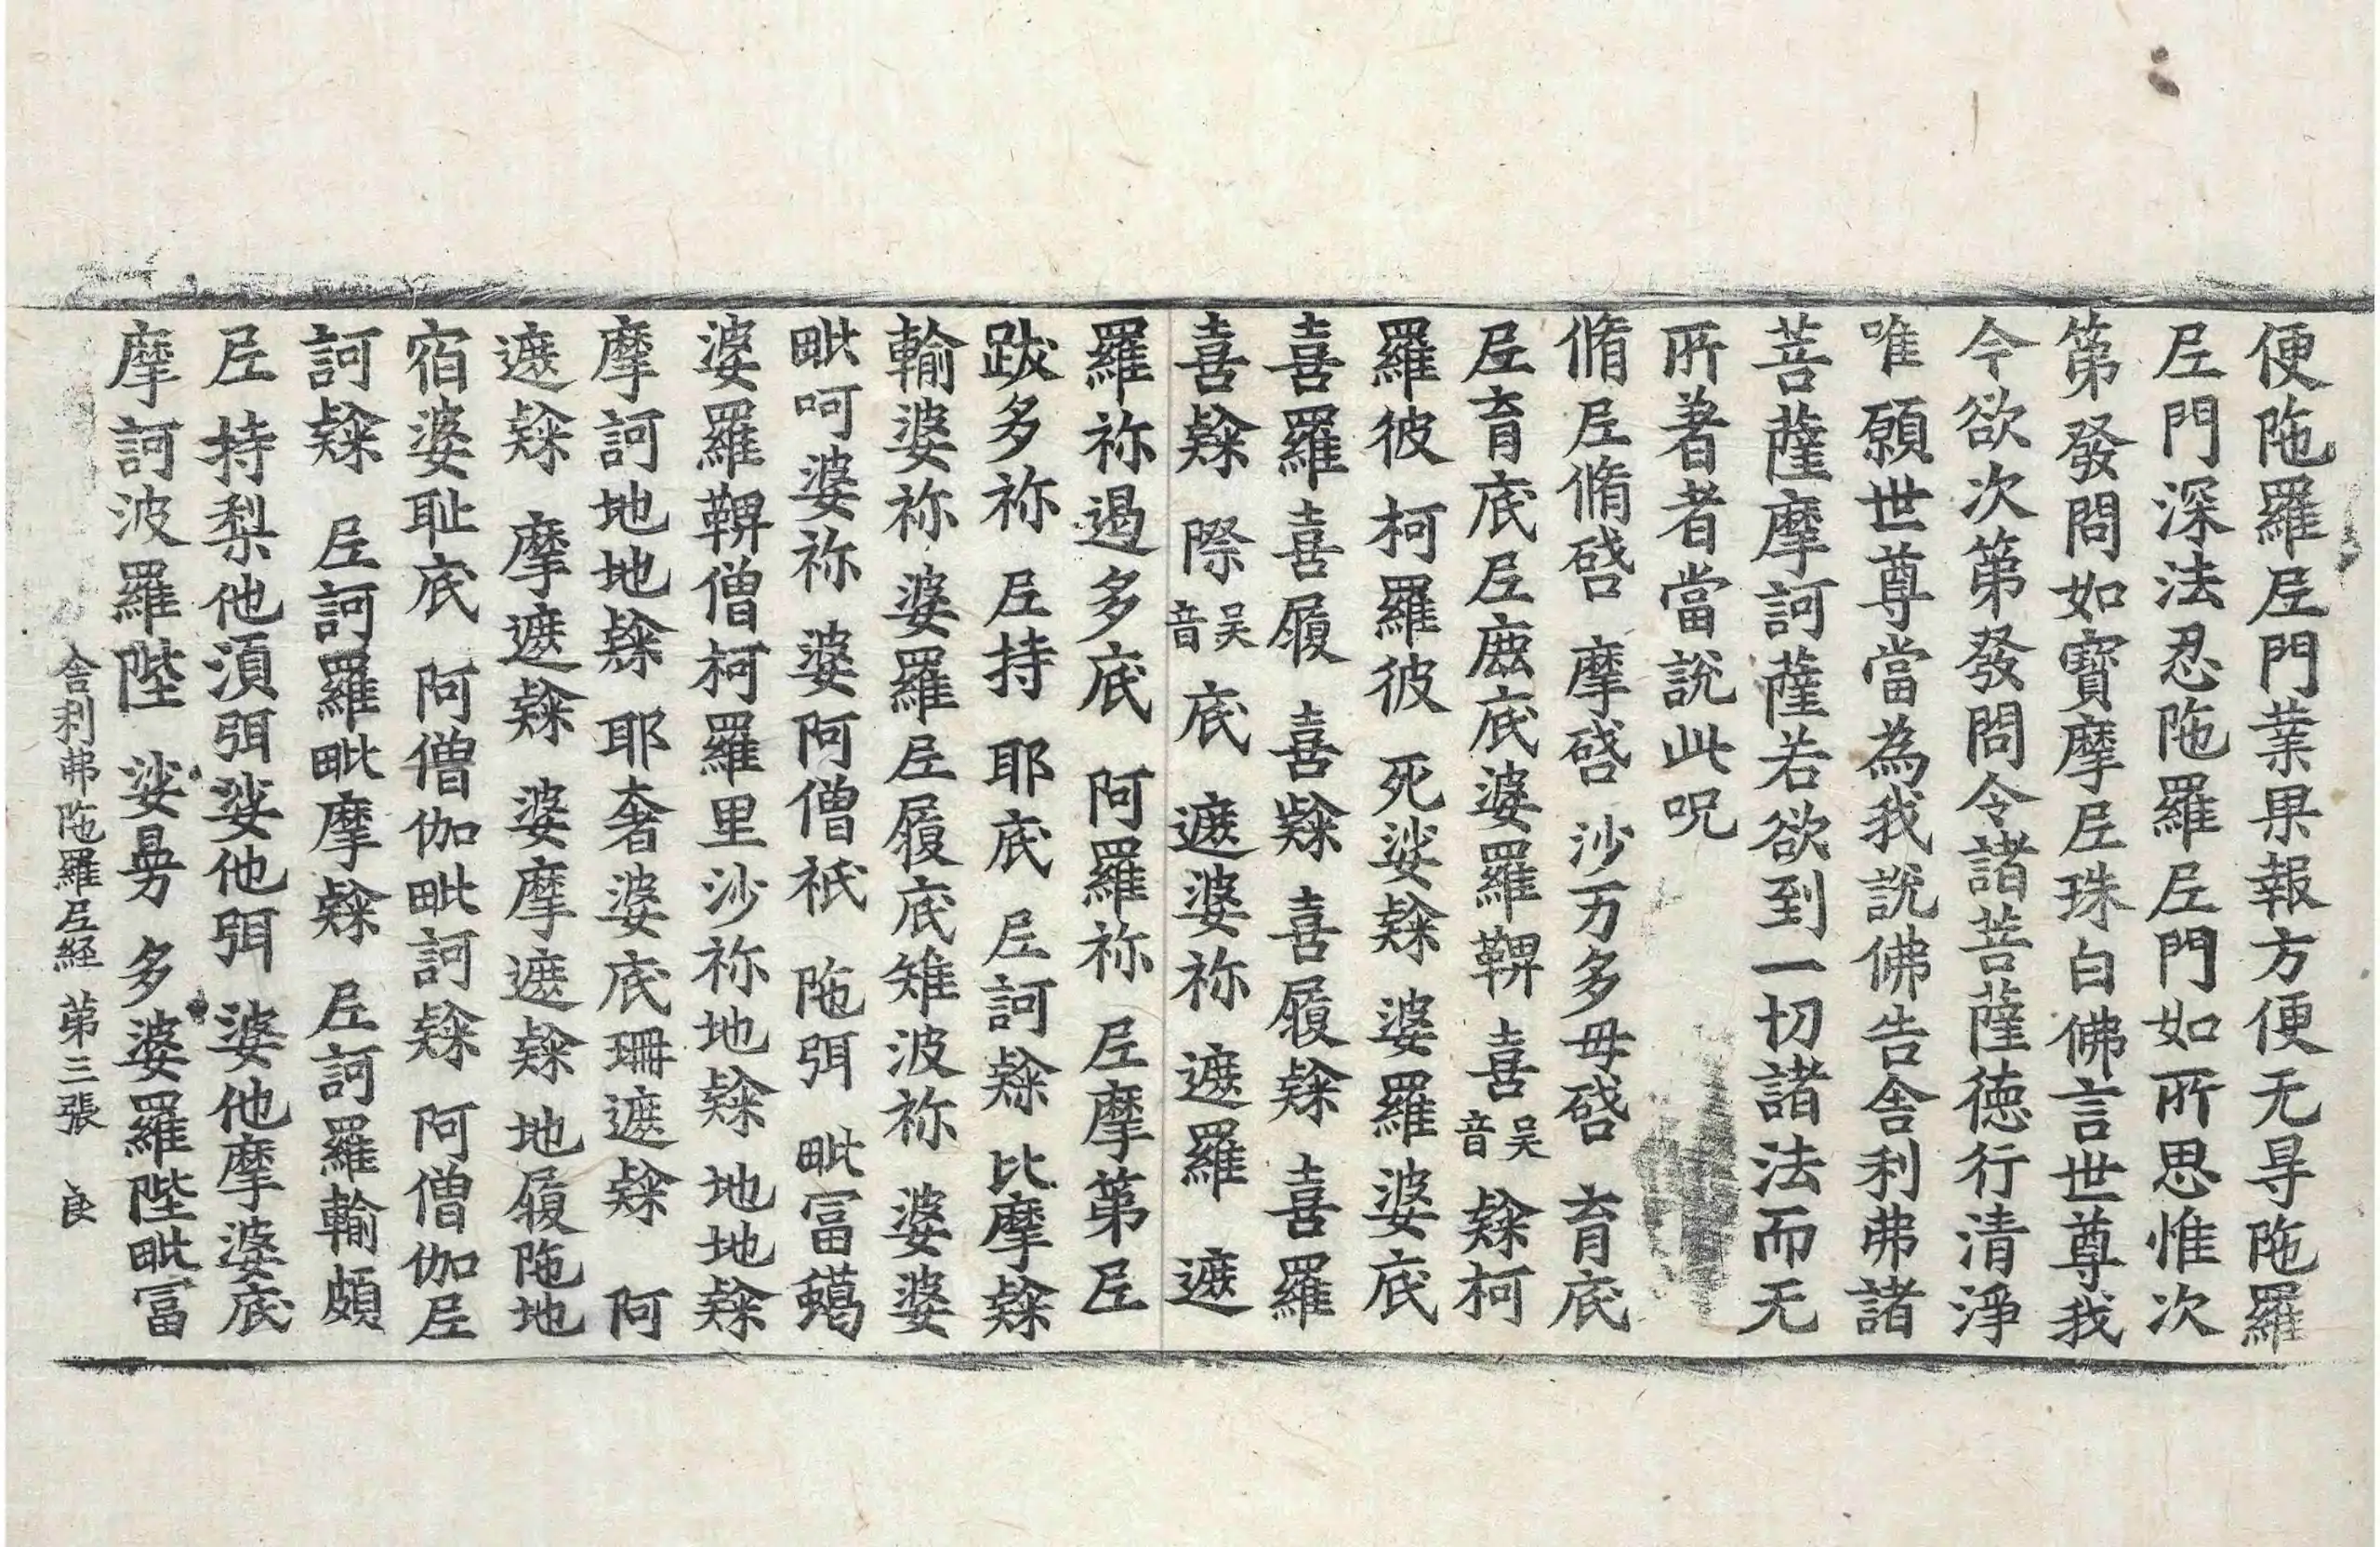 便陁羅𡰱門業果報方便无㝵陁羅
𡰱門深法忍陁羅𡰱門如所思惟次
第發問如寶摩𡰱珠白佛言世尊我
今欲次第發問令諸菩薩德行清淨
唯願世尊當為我說佛告舎利弗諸
菩薩摩訶薩若欲到一切諸法而无
所著者當說此呪
脩𡰱脩𠶜 摩𠶜 沙万多母𠶜 育底
𡰱育底𡰱𢊍底婆羅鞞 喜吳音 𥻦柯
羅彼 柯羅彼 死娑𥻦 婆羅婆底
喜羅喜履 喜𥻦 喜履𥻦 喜羅
喜𥻦 際吳音 底 遮婆祢 遮羅 遮
羅祢遏多底 阿羅祢 𡰱摩第𡰱
跋多祢 𡰱持 耶底 𡰱訶𥻦 比摩𥻦
輸婆祢 婆羅𡰱履底雉波祢 婆婆
毗呵婆祢 婆阿僧祇 陁弭 毗冨蠍
婆羅鞞僧柯羅里沙祢地𥻦 地地𥻦
摩訶地地𥻦 耶奢婆底珊遮𥻦 阿
遮𥻦 摩遮𥻦 婆摩遮𥻦 地履陁地
宿婆耻底 阿僧伽毗訶𥻦 阿僧伽𡰱
訶𥻦 𡰱訶羅毗摩𥻦 𡰱訶羅輸頗
𡰱 持梨他湏弭娑他弭 婆他摩婆底
摩訶波羅陛 娑㬅 多婆羅陛毗冨
舎利弗陁羅𡰱経 第三張 良